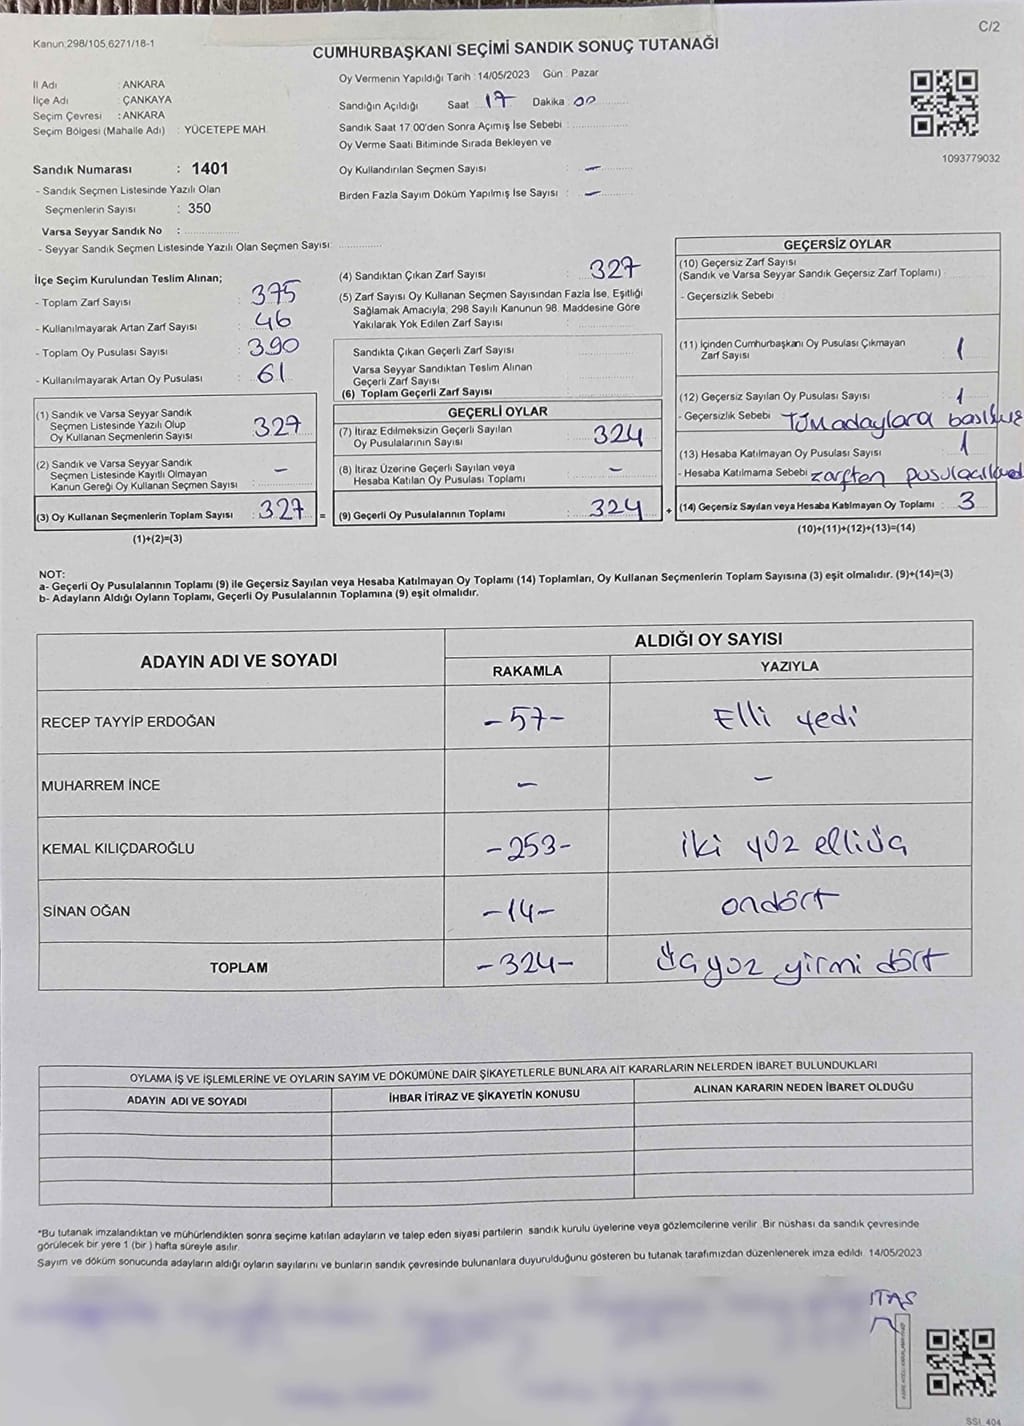 C/2
Kanun:298/105,6271/18-1
CUMHURBAŞKANI SEÇİMİ SANDIK SONUÇ TUTANAĞI
İl Adı : ANKARA
İlçe Adı : ÇANKAYA
Seçim Çevresi : ANKARA
Seçim Bölgesi (Mahalle Adı) : YÜCETEPE MAH.
Sandık Numarası : 1401
- Sandık Seçmen Listesinde Yazılı Olan
Seçmenlerin Sayısı : 350
Varsa Seyyar Sandık No :
- Seyyar Sandık Seçmen Listesinde Yazılı Olan Seçmen Sayısı:
Oy Vermenin Yapıldığı Tarih : 14/05/2023 Gün : Pazar
Sandığın Açıldığı Saat 17 Dakika : 00
Sandık Saat 17.00'den Sonra Açımış İse Sebebi :
Oy Verme Saati Bitiminde Sırada Bekleyen ve
Oy Kullandırılan Seçmen Sayısı : –
Birden Fazla Sayım Döküm Yapılmış İse Sayısı : –
1093779032
İlçe Seçim Kurulundan Teslim Alınan;
- Toplam Zarf Sayısı : 375
- Kullanılmayarak Artan Zarf Sayısı : 46
- Toplam Oy Pusulası Sayısı : 390
- Kullanılmayarak Artan Oy Pusulası : 61
(1) Sandık ve Varsa Seyyar Sandık
Seçmen Listesinde Yazılı Olup
Oy Kullanan Seçmenlerin Sayısı : 327
(2) Sandık ve Varsa Seyyar Sandık
Seçmen Listesinde Kayıtlı Olmayan
Kanun Gereği Oy Kullanan Seçmen Sayısı : –
(3) Oy Kullanan Seçmenlerin Toplam Sayısı : 327 =
(1)+(2)=(3)
(4) Sandıktan Çıkan Zarf Sayısı : 327
(5) Zarf Sayısı Oy Kullanan Seçmen Sayısından Fazla İse, Eşitliği
Sağlamak Amacıyla, 298 Sayılı Kanunun 98. Maddesine Göre
Yakılarak Yok Edilen Zarf Sayısı :
Sandıkta Çıkan Geçerli Zarf Sayısı
Varsa Seyyar Sandıktan Teslim Alınan
Geçerli Zarf Sayısı
(6) Toplam Geçerli Zarf Sayısı
GEÇERLİ OYLAR
(7) İtiraz Edilmeksizin Geçerli Sayılan
Oy Pusulalarının Sayısı : 324
(8) İtiraz Üzerine Geçerli Sayılan veya
Hesaba Katılan Oy Pusulası Toplamı : –
(9) Geçerli Oy Pusulalarının Toplamı : 324 +
GEÇERSİZ OYLAR
(10) Geçersiz Zarf Sayısı
(Sandık ve Varsa Seyyar Sandık Geçersiz Zarf Toplamı) :
- Geçersizlik Sebebi
(11) İçinden Cumhurbaşkanı Oy Pusulası Çıkmayan
Zarf Sayısı : 1
(12) Geçersiz Sayılan Oy Pusulası Sayısı : 1
- Geçersizlik Sebebi : Tüm adaylara
(13) Hesaba Katılmayan Oy Pusulası Sayısı : 1
- Hesaba Katılmama Sebebi : zarften
(14) Geçersiz Sayılan veya Hesaba Katılmayan Oy Toplamı : 3
(10)+(11)+(12)+(13)=(14)
NOT:
a- Geçerli Oy Pusulalarının Toplamı (9) ile Geçersiz Sayılan veya Hesaba Katılmayan Oy Toplamı (14) Toplamları, Oy Kullanan Seçmenlerin Toplam Sayısına (3) eşit olmalıdır. (9)+(14)=(3)
b- Adayların Aldığı Oyların Toplamı, Geçerli Oy Pusulalarının Toplamına (9) eşit olmalıdır.
ADAYIN ADI VE SOYADI
ALDIĞI OY SAYISI
RAKAMLA YAZIYLA
RECEP TAYYİP ERDOĞAN -57- Elli yedi
MUHARREM İNCE – –
KEMAL KILIÇDAROĞLU -253- iki yüz elliüç
SİNAN OĞAN -14- ondört
TOPLAM -324- üçyüz yirmi dört
OYLAMA İŞ VE İŞLEMLERİNE VE OYLARIN SAYIM VE DÖKÜMÜNE DAİR ŞİKAYETLERLE BUNLARA AİT KARARLARIN NELERDEN İBARET BULUNDUKLARI
ADAYIN ADI VE SOYADI İHBAR İTİRAZ VE ŞİKAYETİN KONUSU ALINAN KARARIN NEDEN İBARET OLDUĞU
*Bu tutanak imzalandıktan ve mühürlendikten sonra seçime katılan adayların ve talep eden siyasi partilerin sandık kurulu üyelerine veya gözlemcilerine verilir. Bir nüshası da sandık çevresinde
görülecek bir yere 1 (bir ) hafta süreyle asılır.
Sayım ve döküm sonucunda adayların aldığı oyların sayılarını ve bunların sandık çevresinde bulunanlara duyurulduğunu gösteren bu tutanak tarafımızdan düzenlenerek imza edildi. 14/05/2023
SSI_404